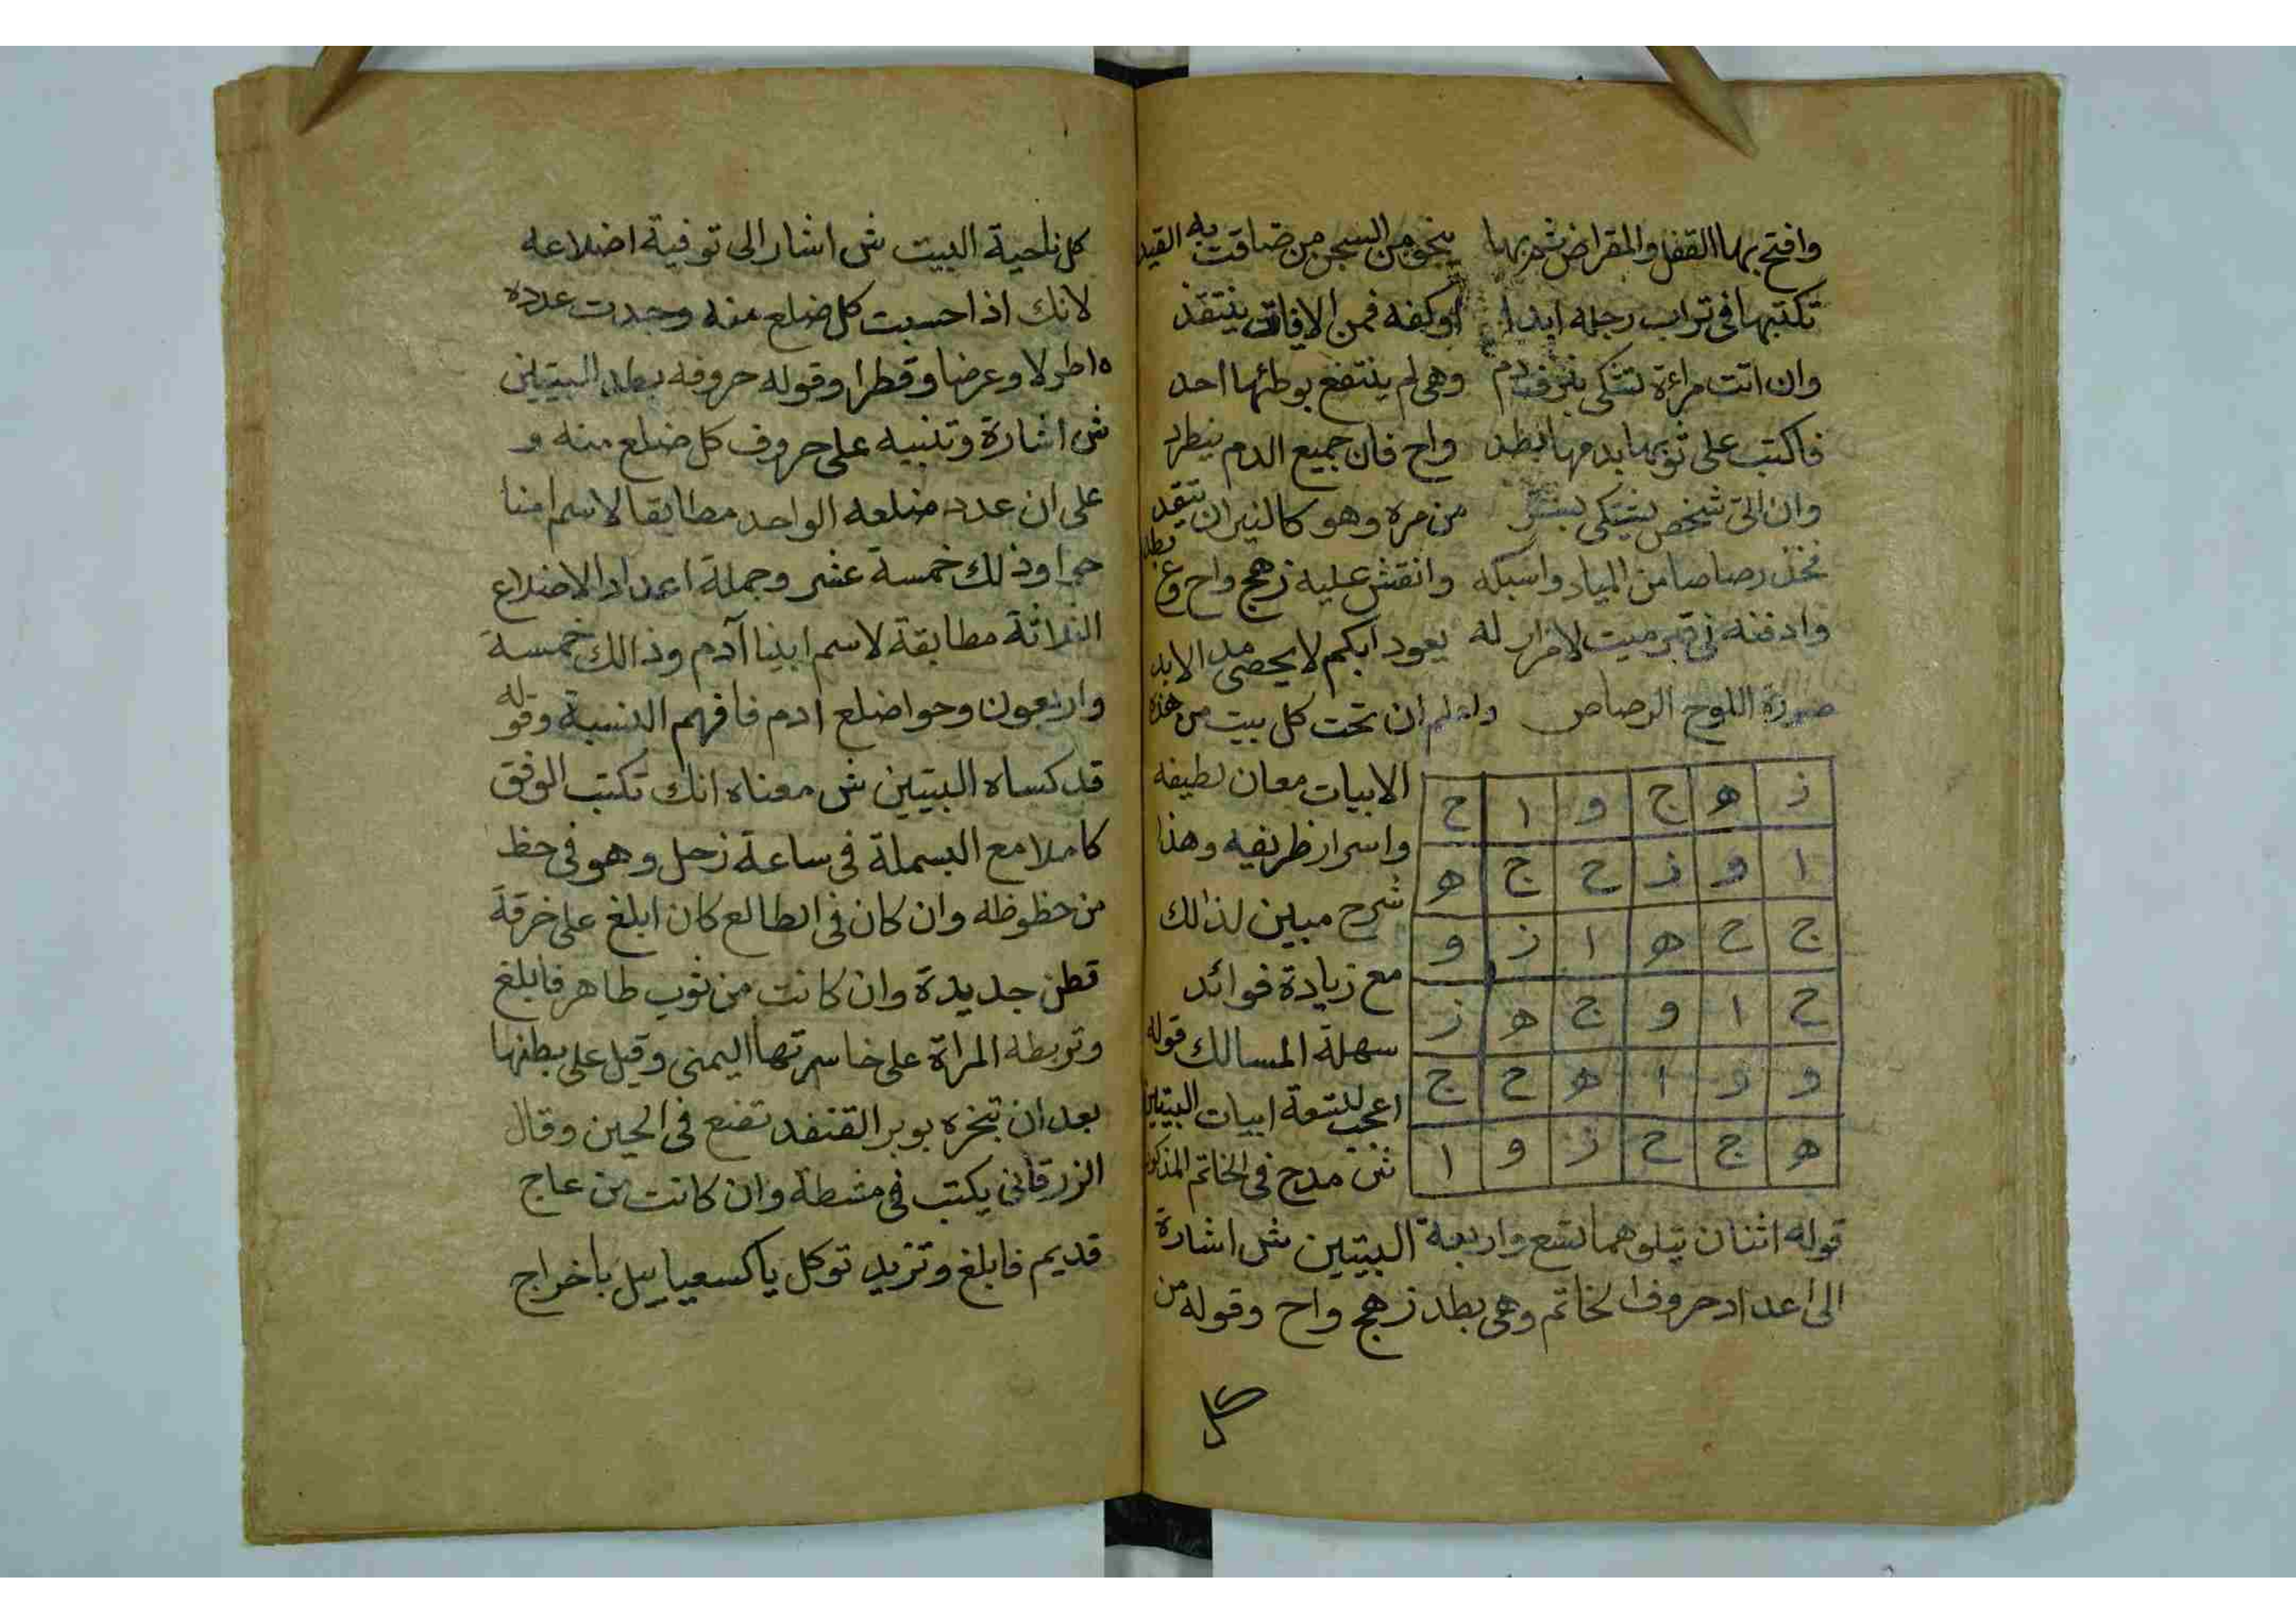 وافتح بها القفل والمقراض ثم بها ينجو من السجن من ضاقت به القيد
تكتبها في تراب رجله ابدا او كفه فمن الافات ينتقذ
وان اتت مراءة تشتكي بنزف دم وهي لم ينتفع بوطئها احد
فاكتب على ثوبها بدمها بطد واح فان جميع الدم ينطرد
وان اتى شخص يشتكي من مره وهو كالنيران تتقد
فخذ رصاصا من المياد واسبكه وانقش عليه زهج واح وع بطد
وادفنه في قبر ميت لامزار له يعود ابكم لا يحصى مد الابد
صورة اللوح الرصاص واعلم ان تحت كل بيت من هذه
الابيات معان لطيفه
واسرار ظريفه وهذا
شرح مبين لذالك
مع زيادة فوائد
سهلة المسالك قوله
اعجب لتسعة ابيات البيتين
ش مدح في الخاتم المذكور
ز ه ج و ا ح
ا و ز ح ج ه
ج ح ه ا ز و
ح ا و ج ه ز
و ز ا ه ح ج
ه ج ح ز و ا
قوله اثنان يتلوهما تسع واربعة البيتين ش اشارة
الى اعداد حروف الخاتم وهي بطد زهج واح وقوله من
كل
كل ناحية البيت ش اشار الى توفية اضلاعه
لانك اذا حسبت كل ضلع منه وجدت عدده
١٥ طولا وعرضا وقطرا وقوله حروفه بطد البيتين
ش اشارة وتنبيه على حروف كل ضلع منه و
على ان عدد ضلعه الواحد مطابقا لاسم امنا
حوا وذلك خمسة عشر وجملة اعداد الاضلاع
الثلاثة مطابقة لاسم ابينا آدم وذالك خمسة
واربعون وحوا ضلع ادم فافهم النسبة وقوله
قد كساه البيتين ش معناه انك تكتب الوفق
كاملا مع البسملة في ساعة زحل وهو في حظ
من حظوظه وان كان في الطالع كان ابلغ على خرقة
قطن جديدة وان كانت من ثوب طاهر فابلغ
وتربطه المراة على خاسرتها اليمنى وقيل على بطنها
بعد ان تبخره بوبر القنفد تضع في الحين وقال
الزرقاني يكتب في مشطة وان كانت من عاج
قديم فابلغ وتزيد توكل يا كسفياييل باخراج